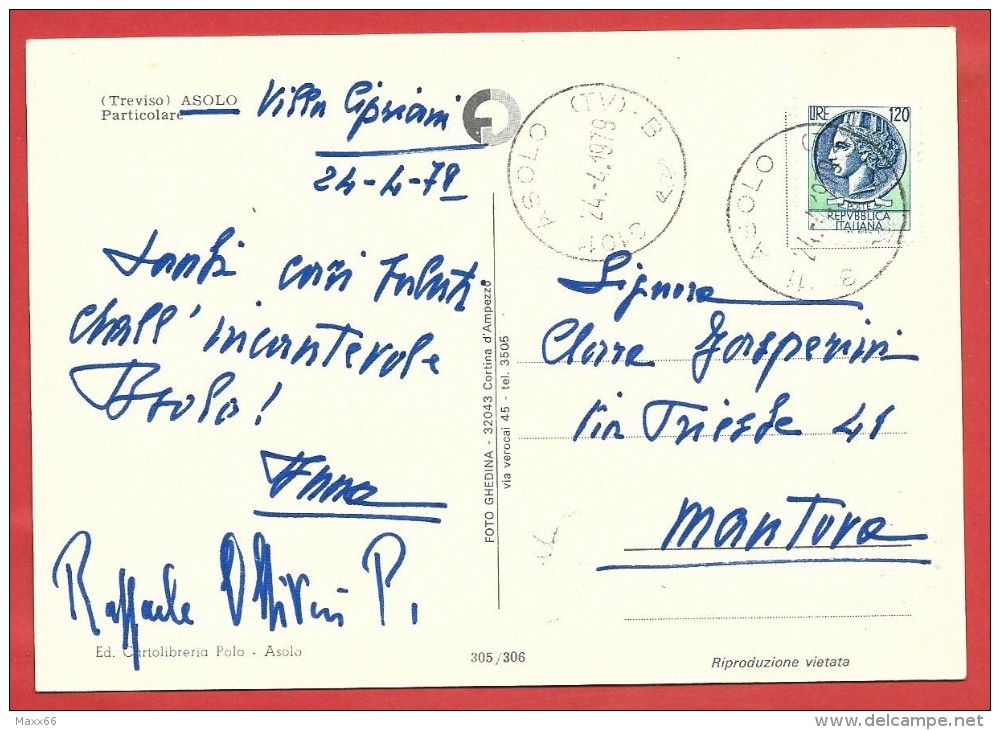 (Treviso) ASOLO
Particolare
Villa Cipriani
24-4-79
Tanti cari saluti
dall' incantevole
Asolo!
Anna
Raffaele P.
Ed. Cartolibreria Polo - Asolo
FOTO GHEDINA - 32043 Cortina d'Ampezzo
via verocai 45 - tel. 3505
305/306
ASOLO (TV) - B
24.-4.1979
LIRE 120
POSTE
REPVBBLICA
ITALIANA
ASOLO
Signora
Clara Gasperini
Via Trieste 41
Mantova
Riproduzione vietata
Maxx66
www.delcampe.net